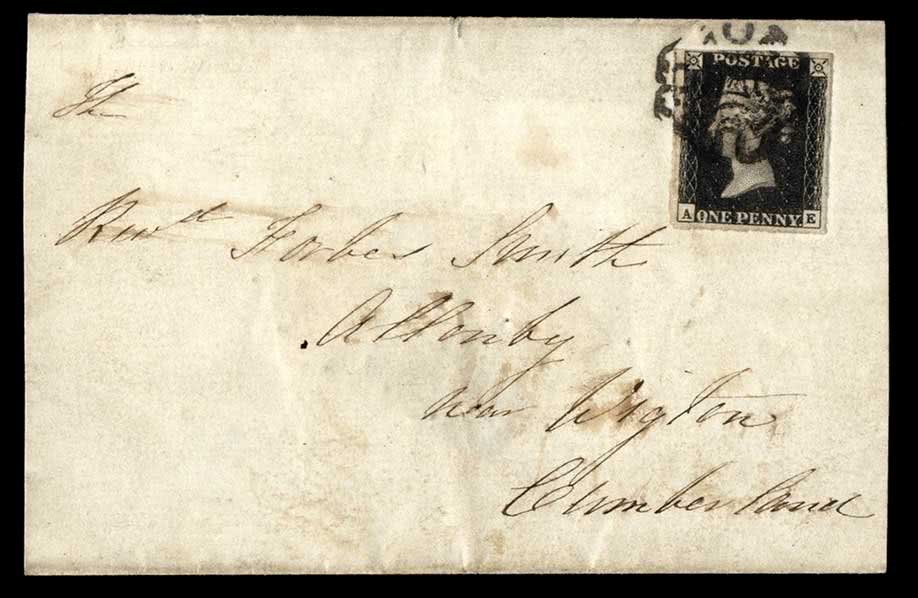 POSTAGE
A ONE PENNY. E
The
Revd Forbes Smith
Allonby
near Wigton
Cumberland